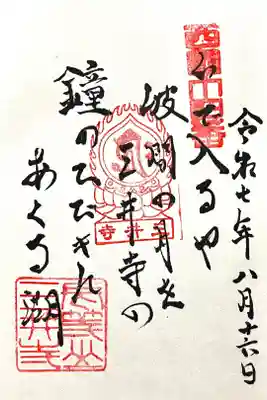 令和七年八月十六日
いで入るや
波間の月を
三井寺の
鐘のひびきに
あくる湖
三井寺